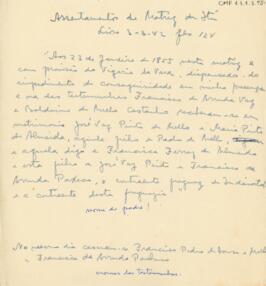 CMF 1.1.1.2
Assentamentos da Matriz de Itú
Livro 3-6-42 fls 124
"Aos 23 de Janeiro de 1825 nesta matriz e
com provisão do Vigario da Vara, dispensados do
impedimento de consanguinidade em minha presença
e na das testemunhas Francisco de Arruda Vaz
e Balduino de Mello Castanho receberam-se em
matrimonio José Vaz Pinto de Mello e Maria Pinto
de Almeida, aquele filho de Pedro de Mello,
e aquela digo e Francisca Ferraz de Almeida
e esta filha de José Vaz Pinto e Francisca de
Arruda Pacheco, o contraente freguez de Indaiatuba
e a contraente desta freguezia
nome do padre!
No mesmo dia casaram-se Francisco Pedro de Souza e Mello
e Francisca de Arruda Pacheco
mesmas testemunhas.